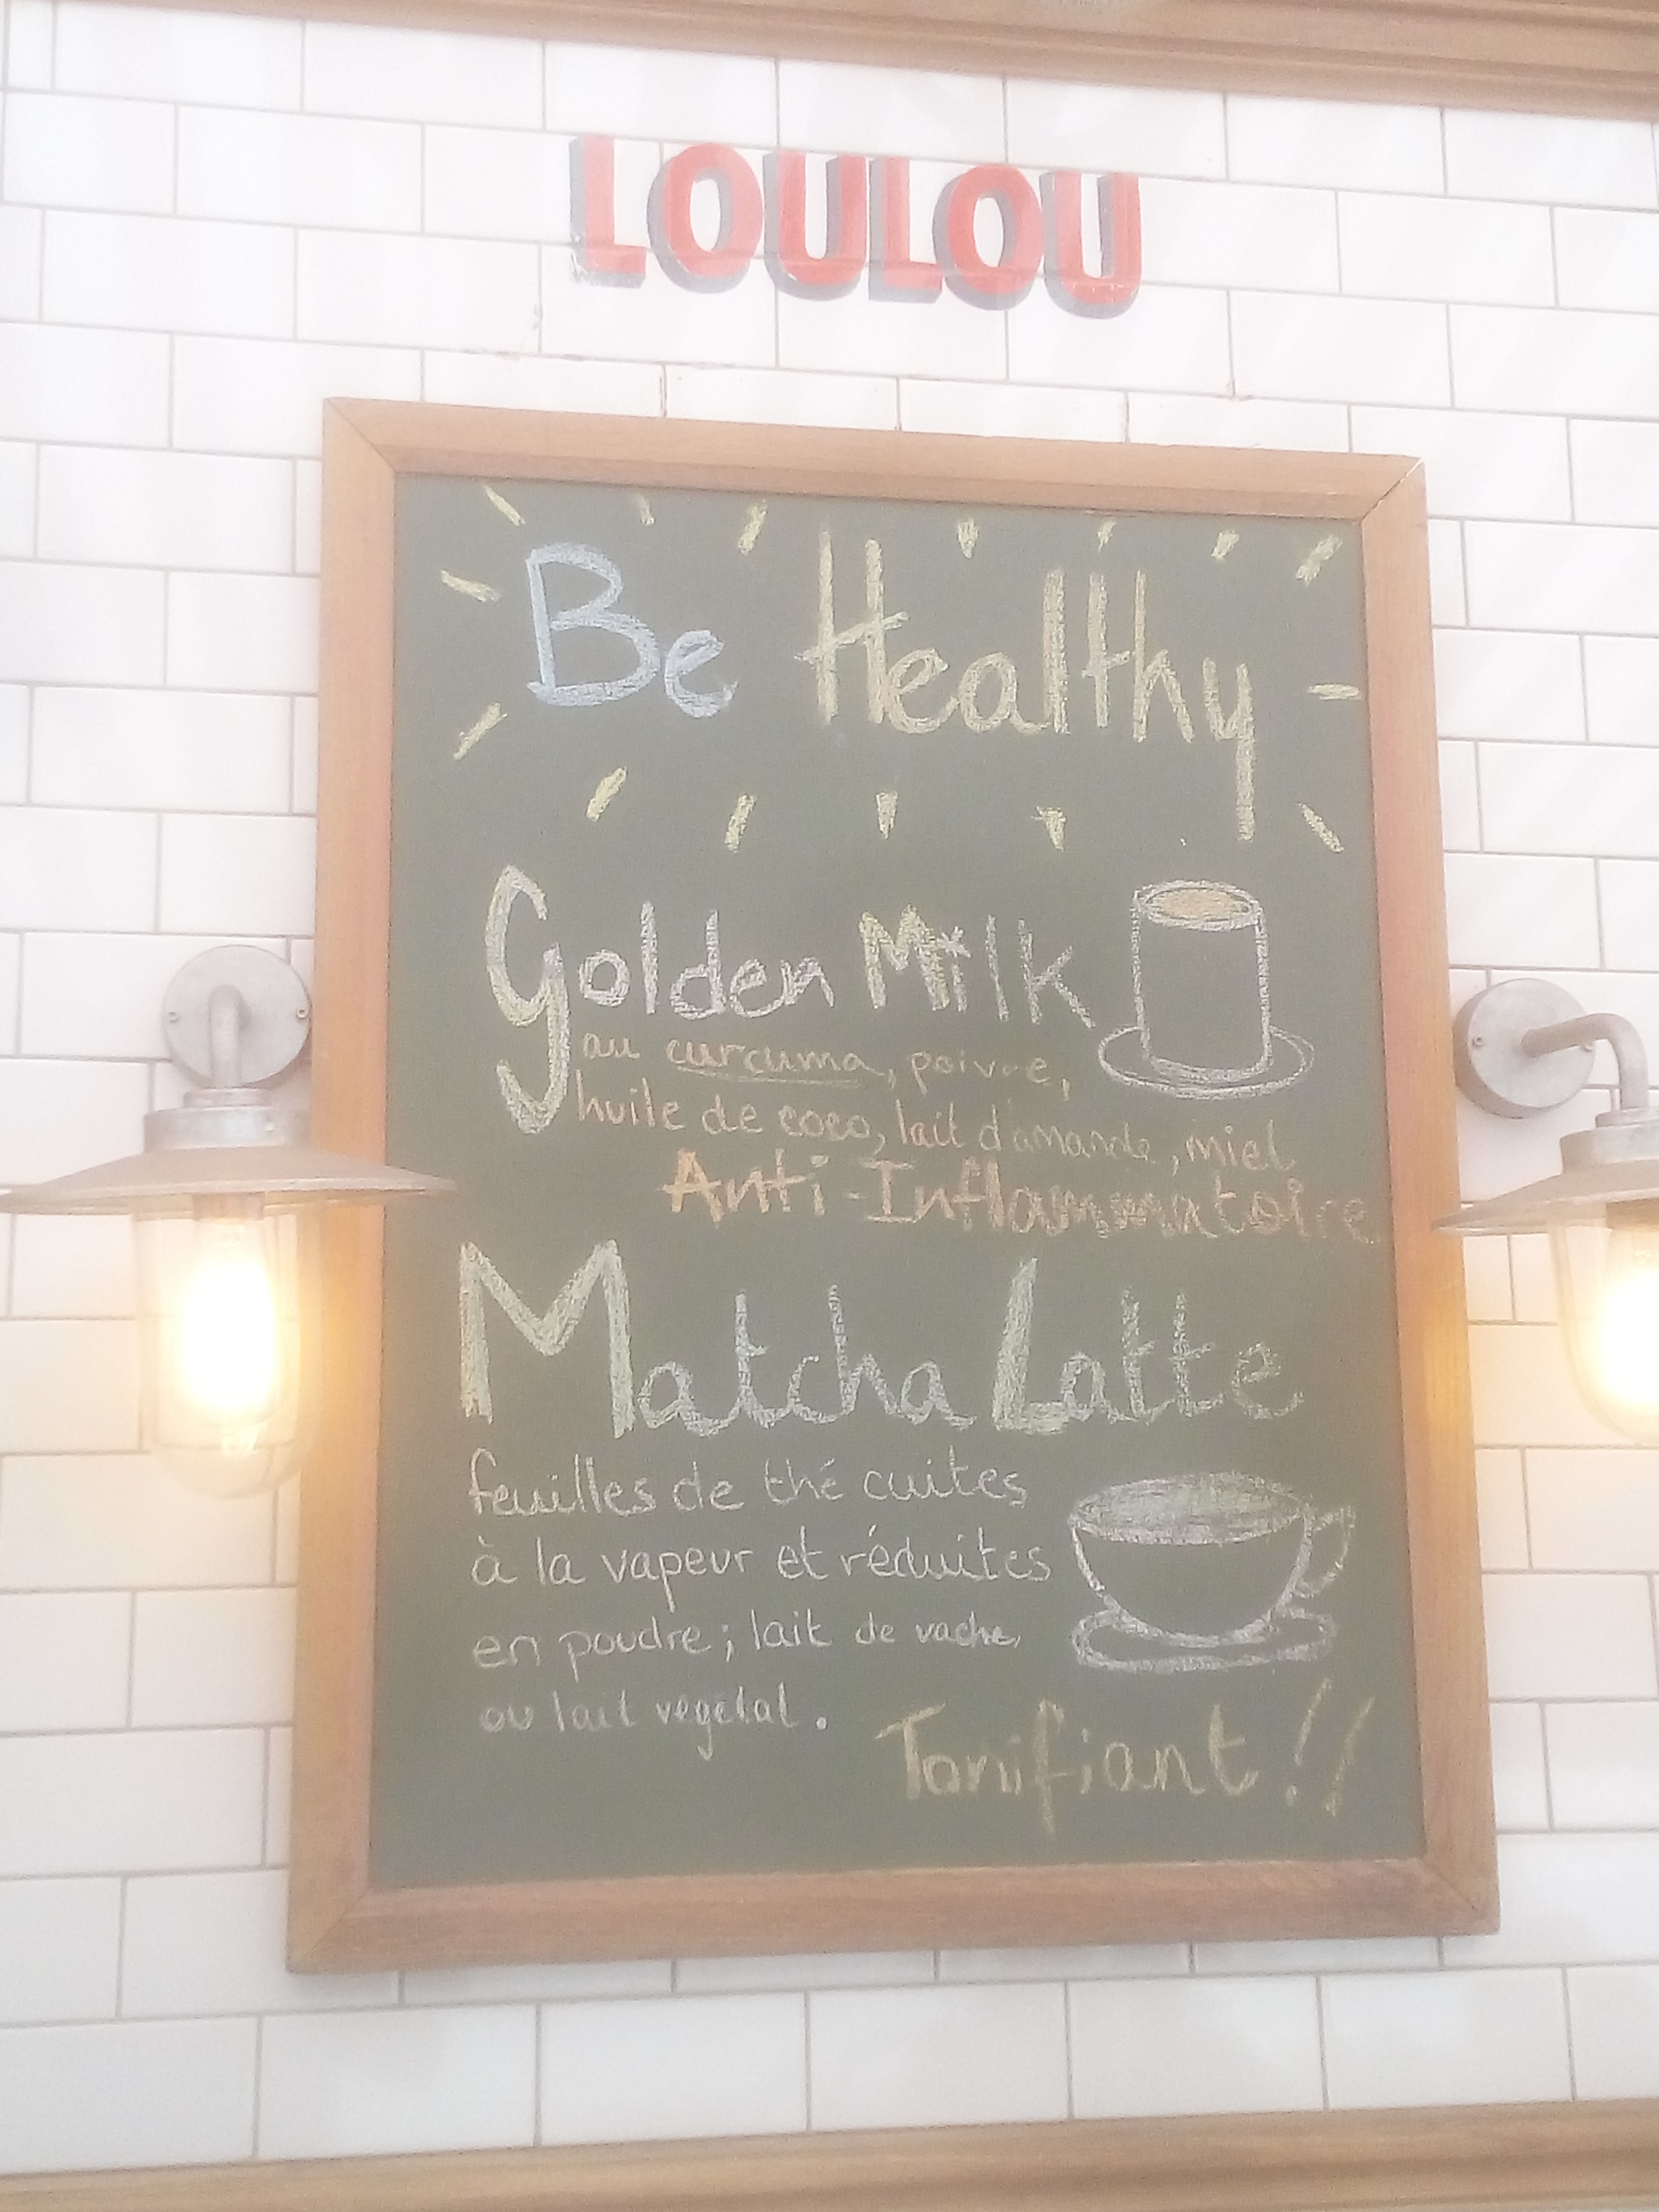 LOULOU
Be Healthy
Golden Milk
au curcuma, poivre,
huile de coco, lait d'amande, miel
Anti-Inflammatoire
Matcha Latte
feuilles de thé cuites
à la vapeur et réduites
en poudre; lait de vache,
ou lait végétal.
Tonifiant!!